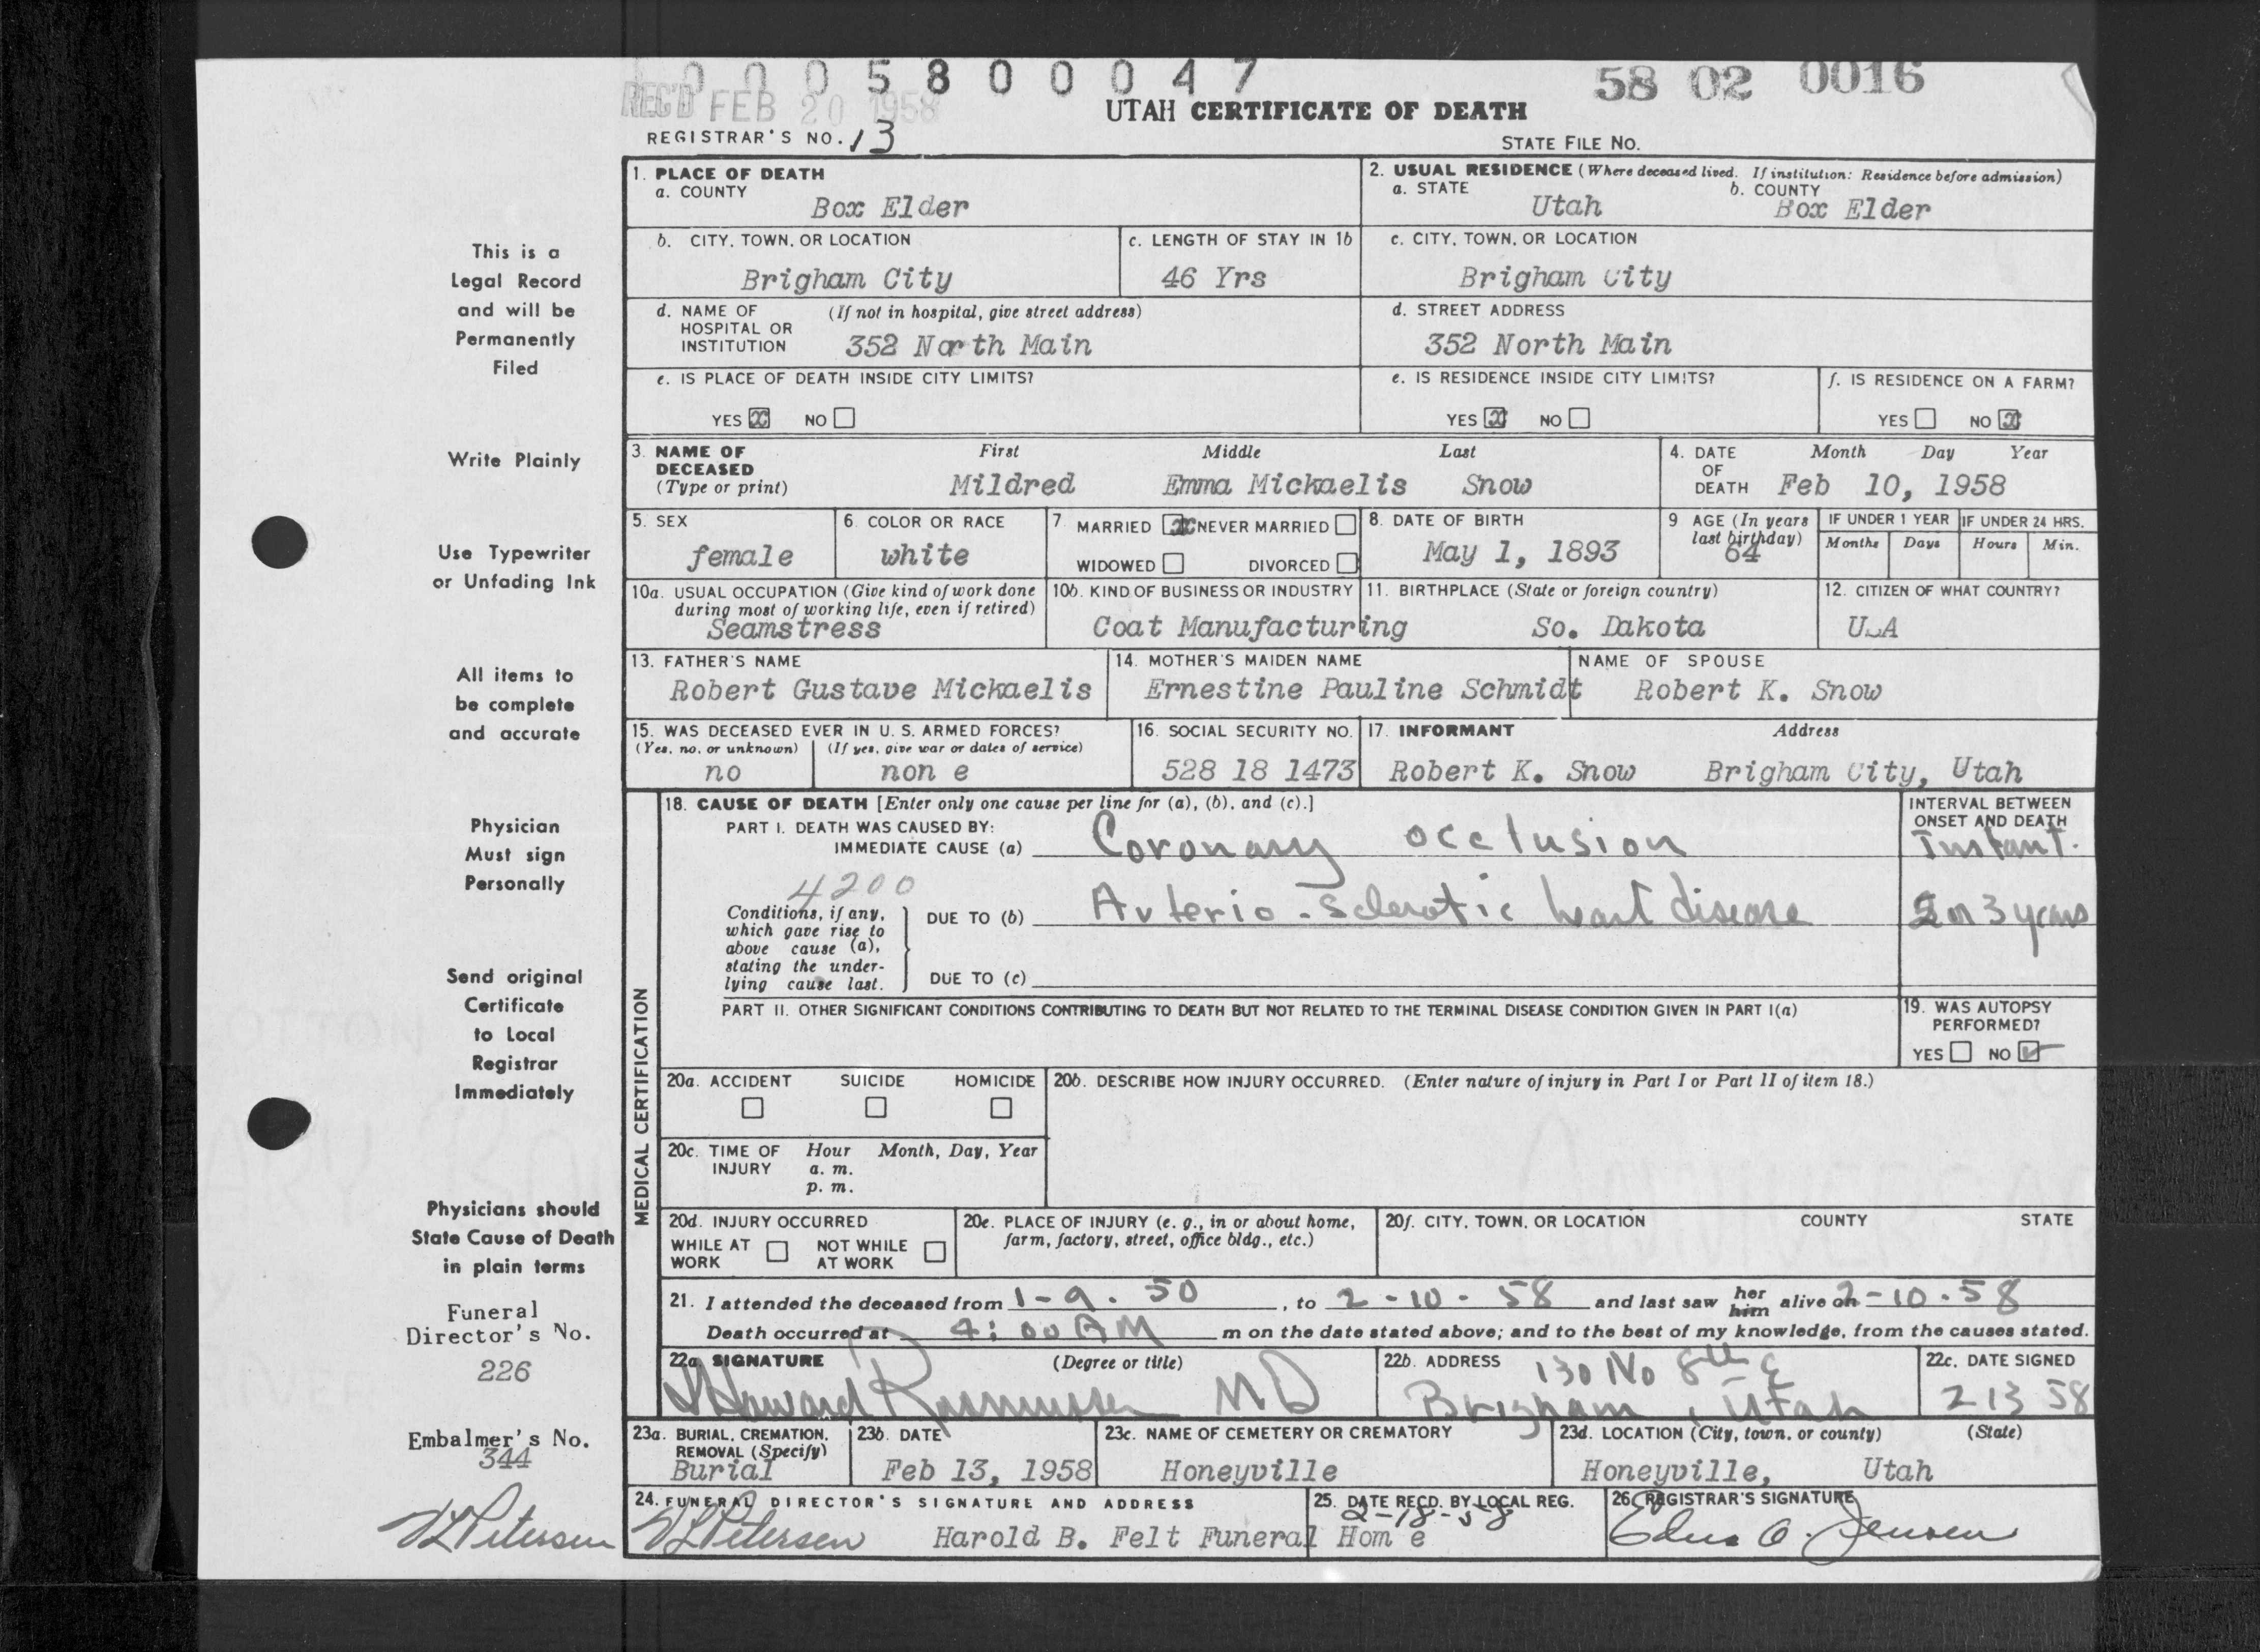 0 0 0 5 8 0 0 0 4 7
58 02 0016
REC'D FEB 20 1958
UTAH CERTIFICATE OF DEATH
REGISTRAR'S NO. 13
STATE FILE NO.
1. PLACE OF DEATH
a. COUNTY
Box Elder
2. USUAL RESIDENCE (Where deceased lived. If institution: Residence before admission)
a. STATE
Utah
b. COUNTY
Box Elder
b. CITY, TOWN, OR LOCATION
Brigham City
c. LENGTH OF STAY IN 1b
46 Yrs
c. CITY, TOWN, OR LOCATION
Brigham City
d. NAME OF HOSPITAL OR INSTITUTION
(If not in hospital, give street address)
352 North Main
d. STREET ADDRESS
352 North Main
e. IS PLACE OF DEATH INSIDE CITY LIMITS?
YES x NO
e. IS RESIDENCE INSIDE CITY LIMITS?
YES x NO
f. IS RESIDENCE ON A FARM?
YES NO x
3. NAME OF DECEASED
(Type or print)
First Middle Last
Mildred Emma Mickaelis Snow
4. DATE OF DEATH
Month Day Year
Feb 10, 1958
5. SEX
female
6. COLOR OR RACE
white
7. MARRIED x NEVER MARRIED
WIDOWED DIVORCED
8. DATE OF BIRTH
May 1, 1893
9 AGE (In years last birthday)
64
IF UNDER 1 YEAR
Months Days
IF UNDER 24 HRS.
Hours Min.
10a. USUAL OCCUPATION (Give kind of work done during most of working life, even if retired)
Seamstress
10b. KIND OF BUSINESS OR INDUSTRY
Coat Manufacturing
11. BIRTHPLACE (State or foreign country)
So. Dakota
12. CITIZEN OF WHAT COUNTRY?
USA
13. FATHER'S NAME
Robert Gustave Mickaelis
14. MOTHER'S MAIDEN NAME
Ernestine Pauline Schmidt
NAME OF SPOUSE
Robert K. Snow
15. WAS DECEASED EVER IN U. S. ARMED FORCES?
(Yes, no, or unknown) (If yes, give war or dates of service)
no non e
16. SOCIAL SECURITY NO.
528 18 1473
17. INFORMANT Address
Robert K. Snow Brigham City, Utah
MEDICAL CERTIFICATION
18. CAUSE OF DEATH [Enter only one cause per line for (a), (b), and (c).]
PART I. DEATH WAS CAUSED BY:
IMMEDIATE CAUSE (a) Coronary occlusion
INTERVAL BETWEEN ONSET AND DEATH
Instant.
4200
Conditions, if any, which gave rise to above cause (a), stating the underlying cause last.
DUE TO (b) Arterio-sclerotic heart disease
2 or 3 years
DUE TO (c)
PART II. OTHER SIGNIFICANT CONDITIONS CONTRIBUTING TO DEATH BUT NOT RELATED TO THE TERMINAL DISEASE CONDITION GIVEN IN PART I(a)
19. WAS AUTOPSY PERFORMED?
YES NO ✓
20a. ACCIDENT SUICIDE HOMICIDE
20b. DESCRIBE HOW INJURY OCCURRED. (Enter nature of injury in Part I or Part II of item 18.)
20c. TIME OF INJURY
Hour Month, Day, Year
a. m.
p. m.
20d. INJURY OCCURRED
WHILE AT WORK NOT WHILE AT WORK
20e. PLACE OF INJURY (e. g., in or about home, farm, factory, street, office bldg., etc.)
20f. CITY, TOWN, OR LOCATION COUNTY STATE
21. I attended the deceased from 1-9-50, to 2-10-58 and last saw her him alive on 2-10-58
Death occurred at 4:00 AM m on the date stated above; and to the best of my knowledge, from the causes stated.
22a. SIGNATURE (Degree or title)
Howard Rasmussen MD
22b. ADDRESS
130 No 8th E
Brigham, Utah
22c. DATE SIGNED
2 13 58
23a. BURIAL, CREMATION, REMOVAL (Specify)
Burial
23b. DATE
Feb 13, 1958
23c. NAME OF CEMETERY OR CREMATORY
Honeyville
23d. LOCATION (City, town, or county) (State)
Honeyville, Utah
24. FUNERAL DIRECTOR'S SIGNATURE AND ADDRESS
Petersen Harold B. Felt Funeral Hom e
25. DATE RECD. BY LOCAL REG.
2-18-58
26. REGISTRAR'S SIGNATURE
Jensen
This is a
Legal Record
and will be
Permanently
Filed
Write Plainly
Use Typewriter
or Unfading Ink
All items to
be complete
and accurate
Physician
Must sign
Personally
Send original
Certificate
to Local
Registrar
Immediately
Physicians should
State Cause of Death
in plain terms
Funeral
Director's No.
226
Embalmer's No.
344
Petersen